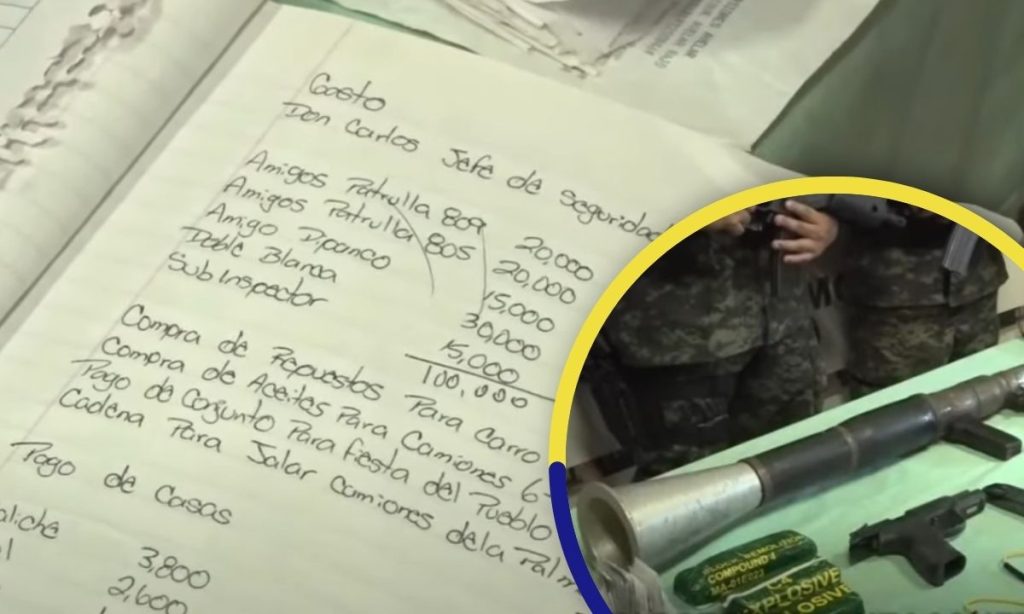 Gasto
Don Carlos Jefe de Seguridad
Amigos Patrulla 809 20,000
Amigos Patrulla 805 20,000
Amigo Dipanco 15,000
Doble Blanca 30,000
Sub Inspector 15,000
100,000
Compra de Repuestos Para Carro
Compra de Aceites Para Camiones 6
Pago de Conjunto Para fiesta del Pueblo
Cadena Para Jalar Camiones de la Palm
Pago de Casas
aliche 3,800
2,600
COMPOUND 4
EXPLOSIVE
OSIVE